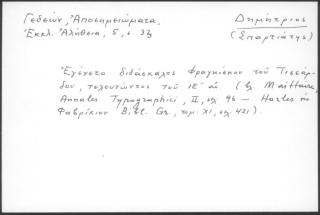 Γεδεών, Ἀποσημειώματα,
Ἐκκλ. Ἀλήθεια, 5, σ. 33
Δημήτριος
(Σπαρτιάτης)
Ἐγένετο διδάσκαλος Φραγκίσκου τοῦ Τισσάρ-
δου, τελευτῶντος τοῦ ΙΕ΄ αἰ. (ἐν Maittaire,
Annales Typographici, II, σελ. 96 — Harles ἐν
Φαβρικίου Bibl. Gr., τομ. XI, σελ. 421).